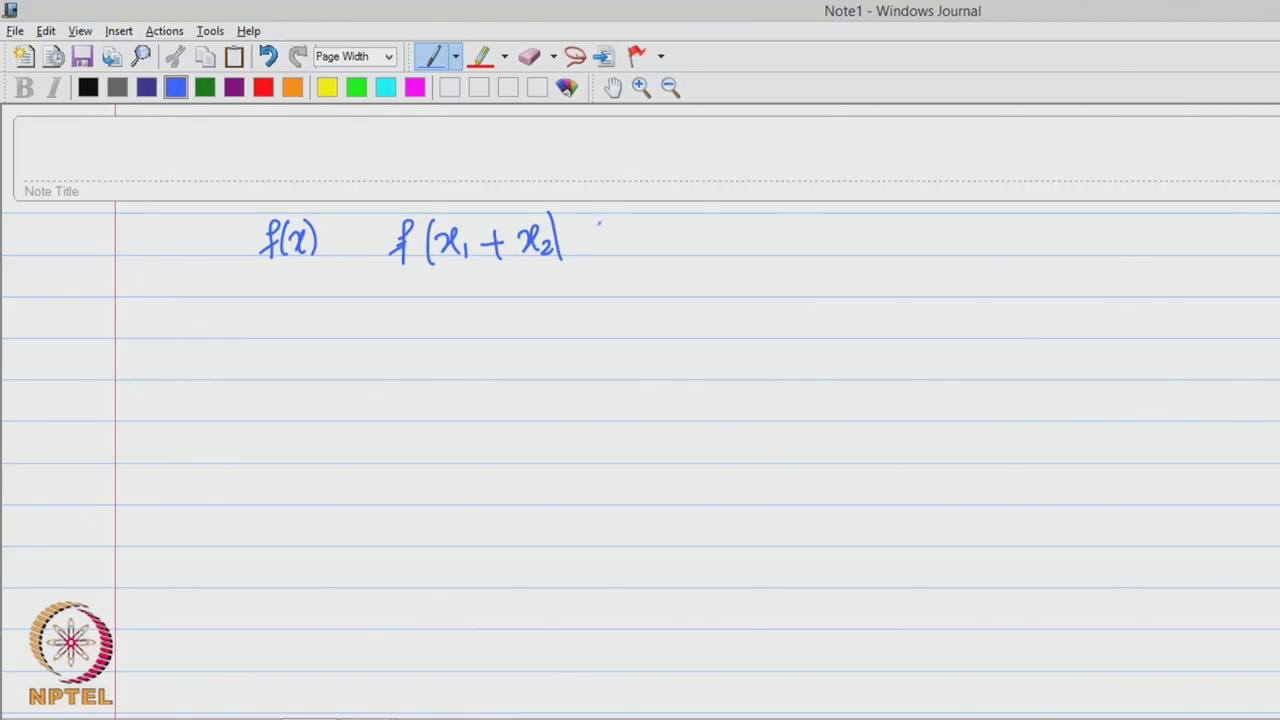 Note1 - Windows Journal
File Edit View Insert Actions Tools Help
Page Width
B I
Note Title
f(x) f(x₁ + x₂)
NPTEL